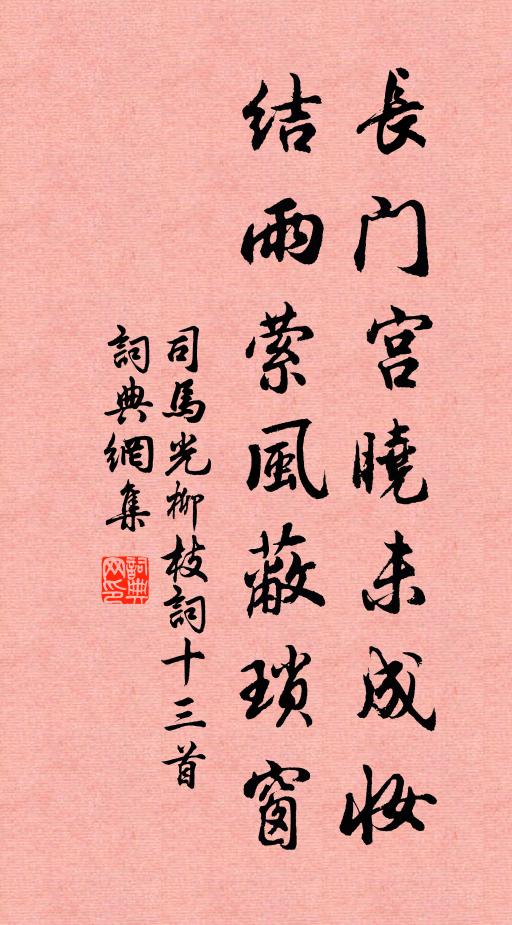 長门宫曉未成妆
結雨縈風蔽瑣窗
司馬光柳枝詞十三首
詞典網集
詞典网印